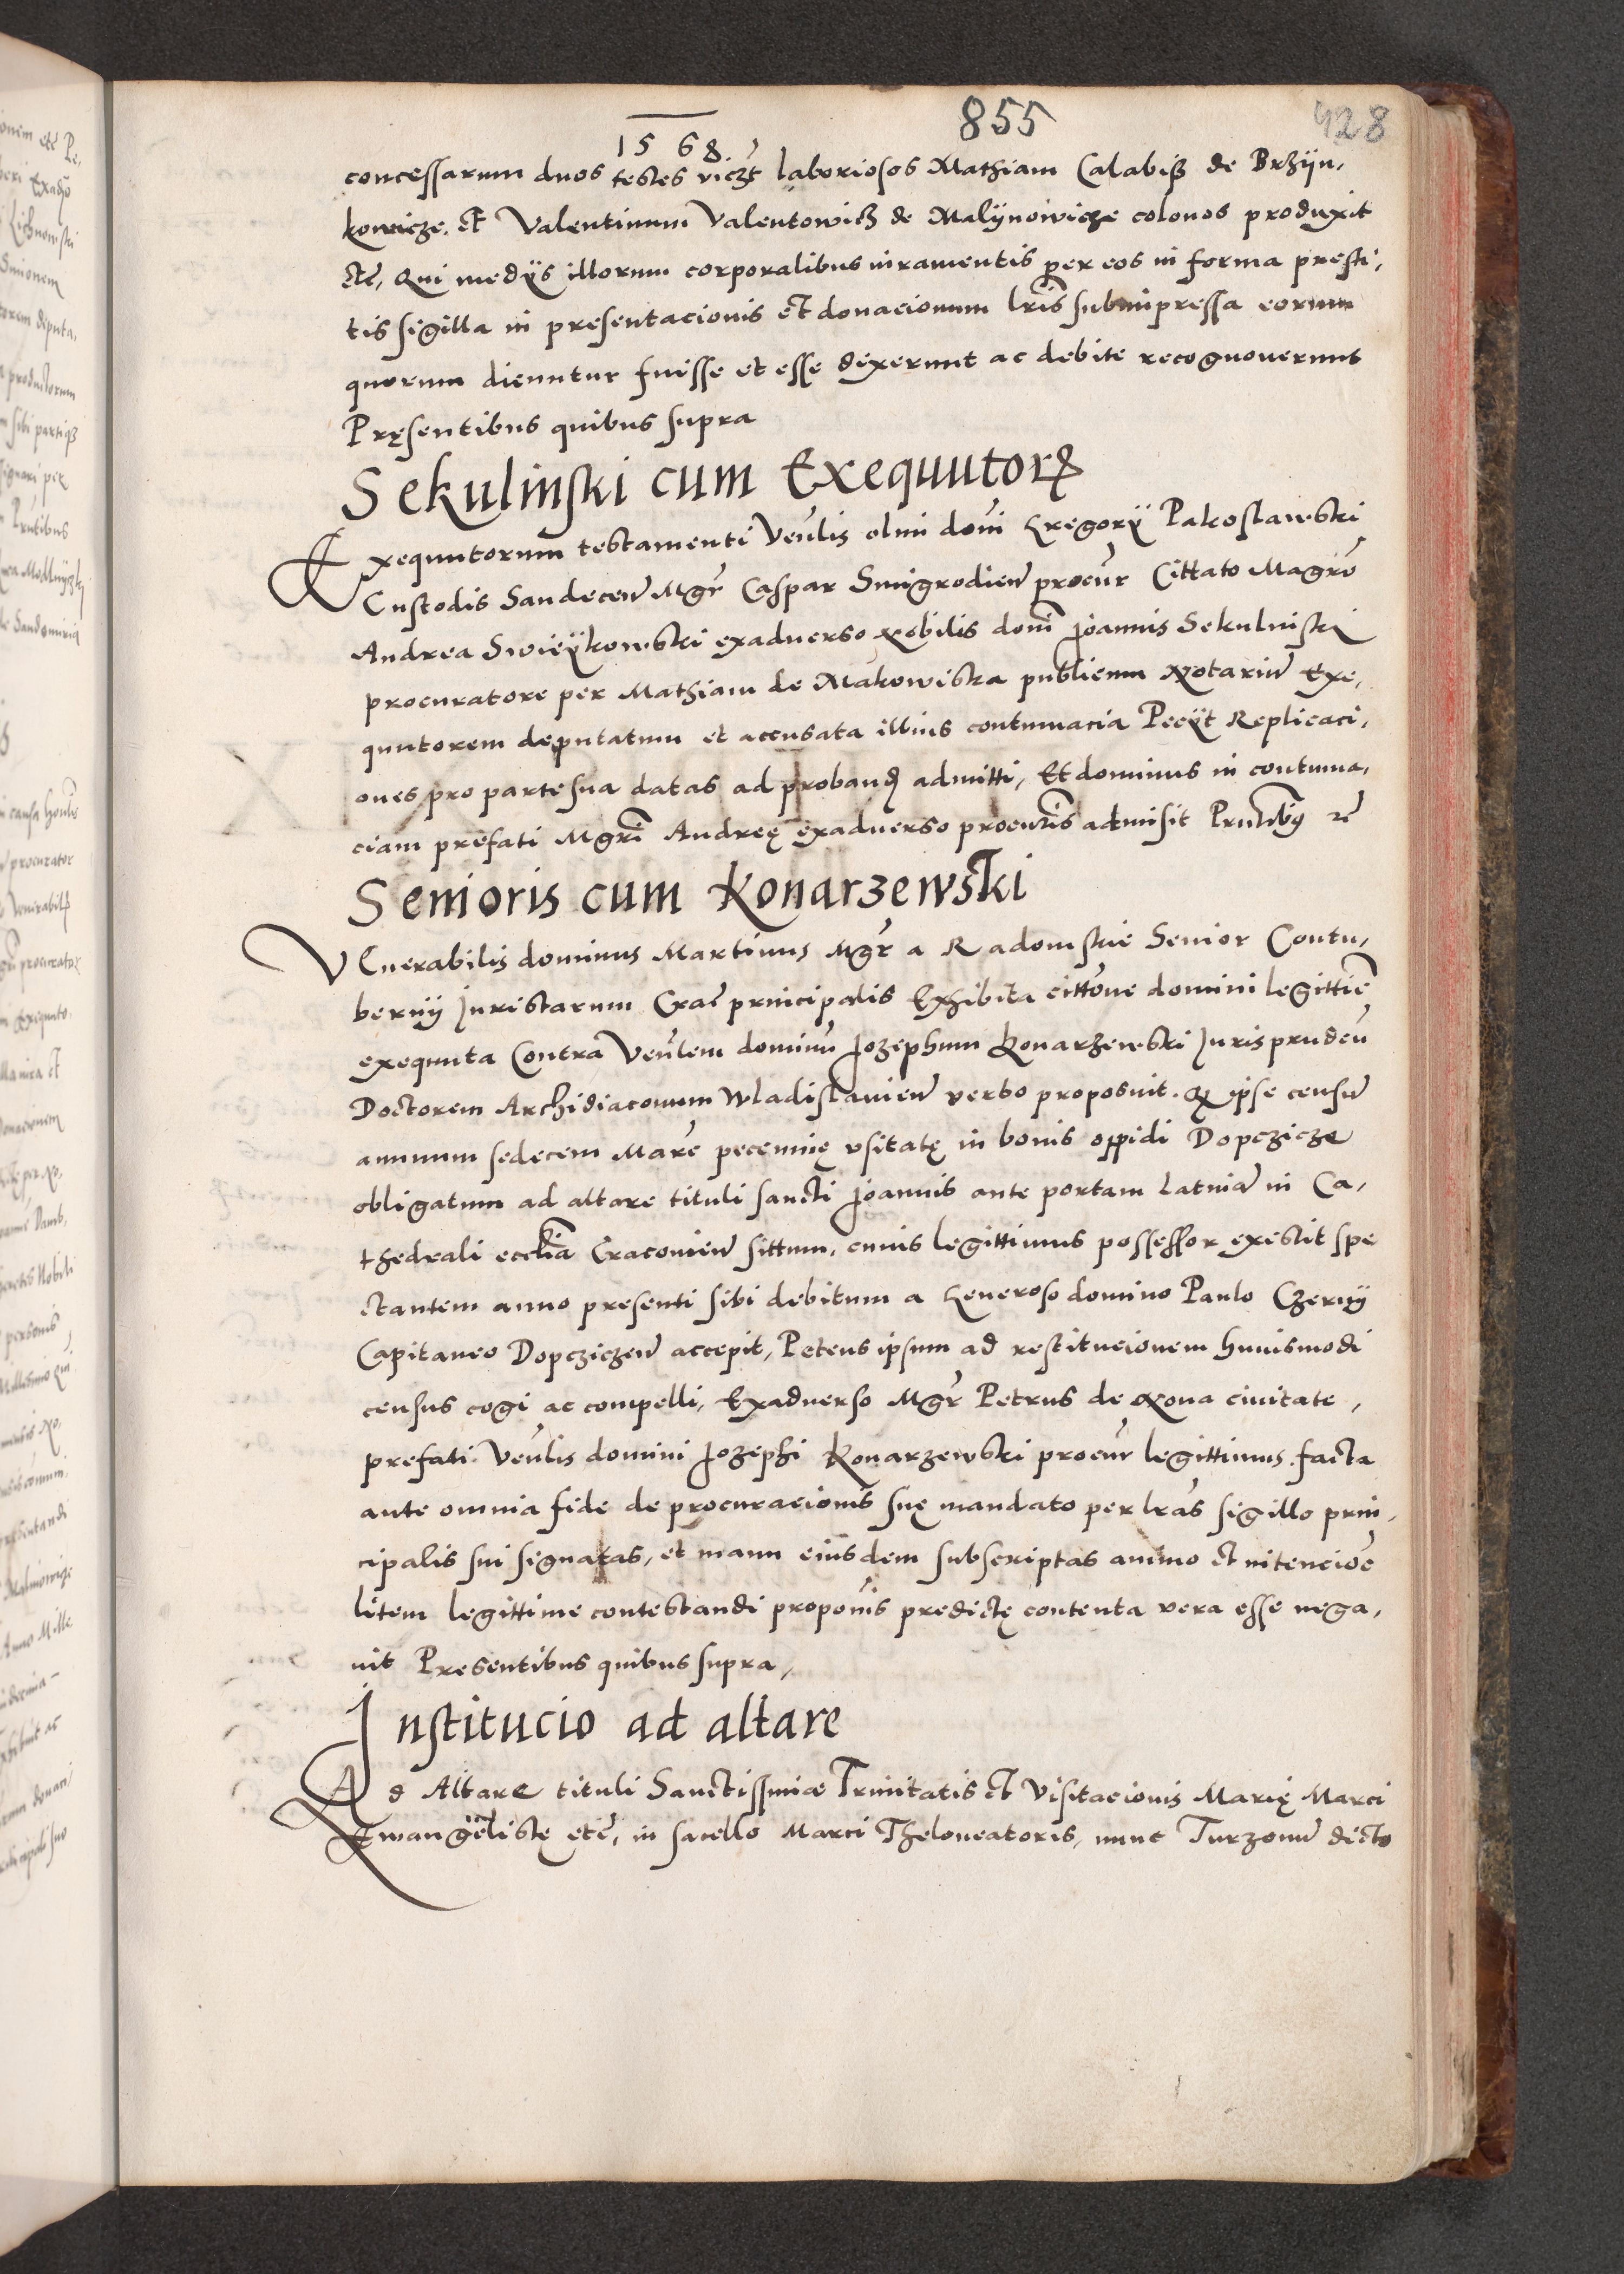 855
428
1568
concessarum duos testes viczt laboriosos Mathiam Calabiß de Brzÿn,
kowicze. et Valentinum Valentowicz de Malÿnowicze colonos produxit
etc̃, Qui medÿs illorum corporalibus iuramentis per eos in forma presti,
tis sigilla in presentacionis et donacionum lr̃is subimpressa eorum
quorum dicuntur fuisse et esse dixerunt ac debite recognoverunt
Pręsentibus quibus supra
Sekulinski cum Exequutorꝝ
Exequutorum testamenti Ven̄lis olim dom̄ Gregorÿ Pakoslawski
Custodis Sandecen̄ Mgr̃ Caspar Smigrodien̄ procur̃ Cittato Magrõ
Andrea Swieÿkowski exadverso Nobilis dom̄ Joannis Sekulinski
procuratore per Mathiam de Makowiska publicum Notariũ Exe,
quutorem deputatum et accusata illius contumacia Peciÿt Replicaci,
ones pro parte sua datas ad proband̄ admitti, Et dominus in contuma,
ciam prefati Mgrĩ Andreę exadverso procur̃is admisit Prñtibus rẽ
Senioris cum Konarzewski
VEnerabilis dominus Martinus Mgr̃ a Radomskie Senior Contu,
bernÿ Juristarum Crac̃ principalis Exhibita cittõne domini legittie̅
exequuta Contra Ven̄lem dominũ Jozephum Konarzewski Jurisprudeñ
Doctorem Archidiaconum Wladislavien̄ verbo proposuit. Qꝫ ipse censũ
annuum sedecem Marc̃ pecunię usitatę in bonis oppidi Dopczicze
obligatum ad altare tituli sancti Joannis ante portam latinã in Ca,
thedrali eccl̃ia Cracovien̄ sittum, cuius legittimus possessor existit spe
ctantem anno presenti sibi debitum a Generoso domino Paulo Czernÿ
Capitaneo Dopcziczen̄ accepit, Petens ipsum ad restitucionem huiusmodi
census cogi ac compelli, Exadverso Mgr̃ Petrus de Nova civitate,
prefati Ven̄lis domini Jozephi Konarzewski procur̃ legittimus. facta
ante omnia fide de procuracionis suę mandato per lr̃as sigillo prin,
cipalis sui signatas, et manu eiusdem subscriptas animo et intencioẽ
litem legittime contestandi proposiñis predictę contenta vera esse nega,
vit Presentibus quibus supra,
Institucio ad altare
Ad Altare tituli Sanctissimæ Trinitatis et Visitacionis Marię Marci
Ewangelistę etc̃, in sacello Marci Theloneatoris, nunc Turzonũ dicto